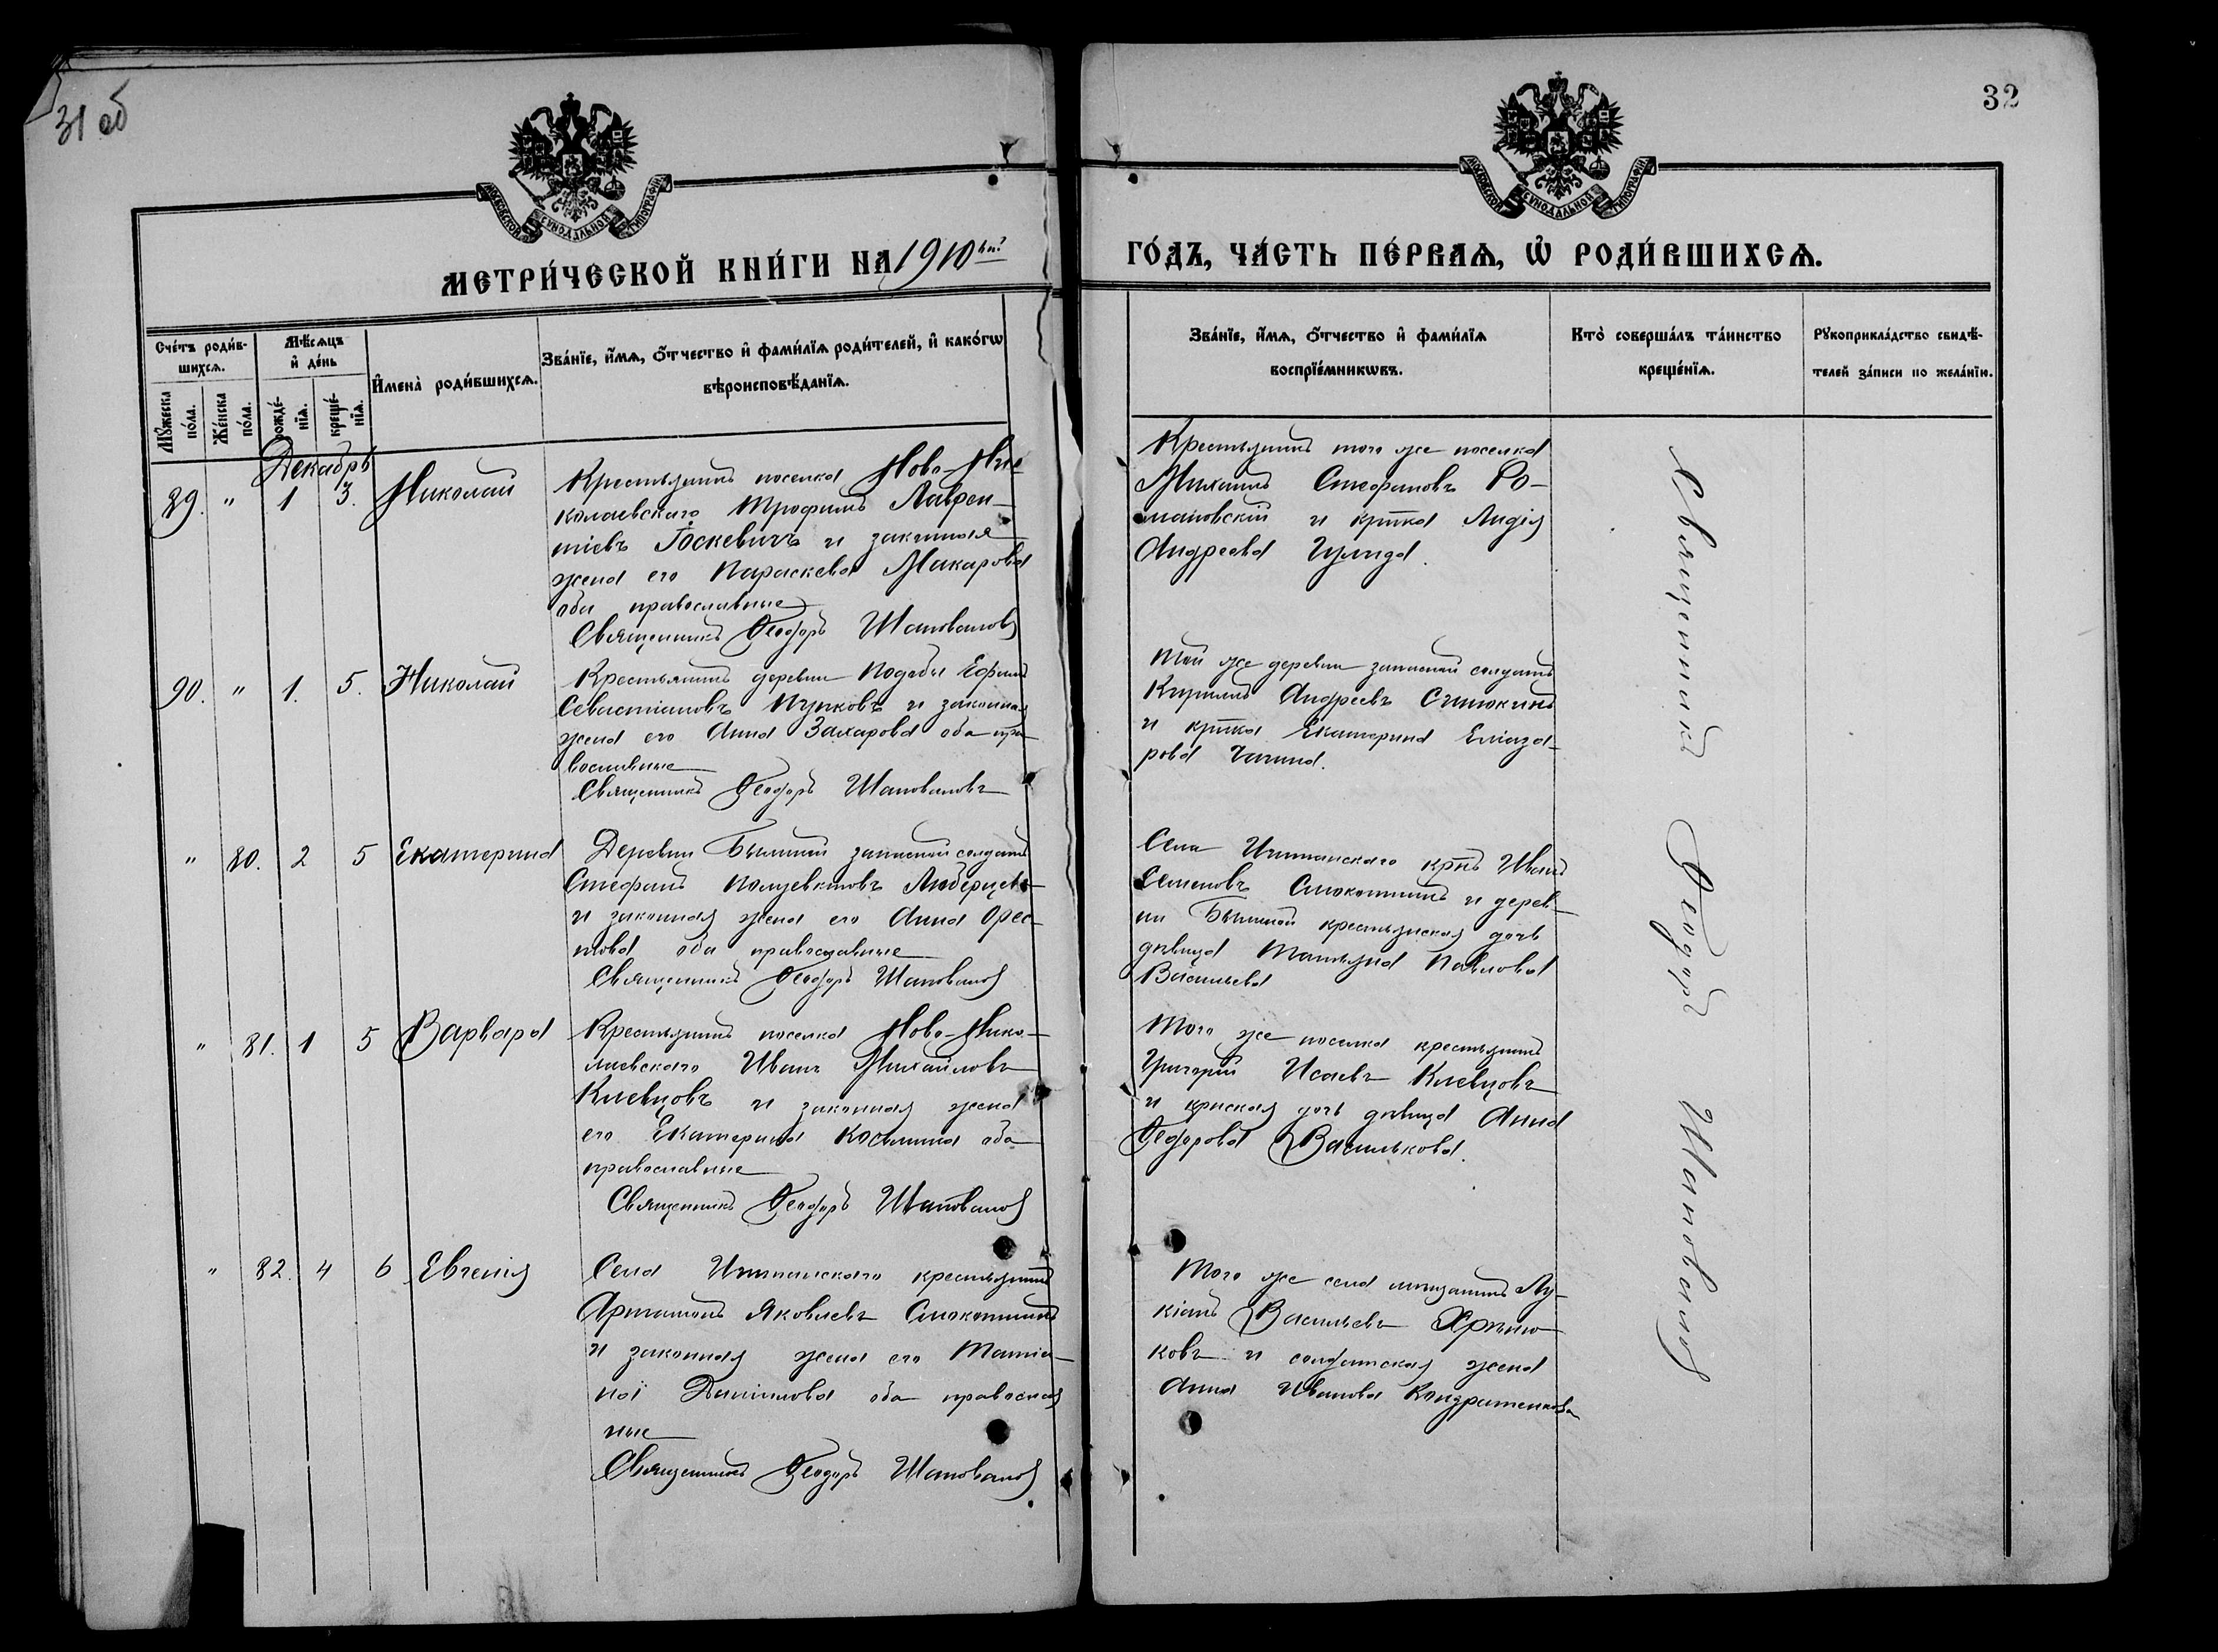 31 об
32
МОСКОВСКОЙ СѴНОДАЛЬНОЙ ТИПОГРАФІИ
МОСКОВСКОЙ СѴНОДАЛЬНОЙ ТИПОГРАФІИ
МЕТРИ́ЧЕСКОЙ КНИ́ГИ НА 1910
ГО́ДЪ, ЧА́СТЬ ПЕ́РВАѦ, Ѽ РОДИ́ВШИХСѦ.
Сче́тъ роди́в-
шихсѧ.
Мꙋ́жеска по́ла.
Же́нска по́ла.
Мѣ́сѧцъ
и҆ де́нь
рожде́-
нїѧ.
креще́-
нїѧ.
И҆мена̀ роди́вшихсѧ.
Зва́нїе, и҆́мѧ, ѻ҆́тчество и҆ фами́лїѧ роди́телей, и҆ како́гѡ
вѣроисповѣ́данїѧ.
Зва́нїе, и҆́мѧ, ѻ҆́тчество и҆ фами́лїѧ
воспрїе́мникѡвъ.
Кто̀ соверша́лъ та́инство
креще́нїѧ.
Рꙋкоприкла́дство свидѣ́-
телей за́писи по жела́нїю.
Декабрь
89. " 1 3. Николай
Крестьянинъ поселка Ново-Ни-
колаевскаго Трофимъ Лаврен-
тіевъ Госкевичъ и законная
жена его Параскева Макарова
оба православные
Священникъ Ѳеодоръ Шаповаловъ
Крестьянинъ того же поселка
Михаилъ Стефановъ Ро-
мановскій и крт҃ка Лидія
Андреева
90. " 1. 5. Николай
Крестьянинъ деревни Ефимъ
Севастіановъ Пупковъ и законная
жена его Анна Захарова оба пра-
вославные
Священникъ Ѳеодоръ Шаповаловъ
Той же деревни запасный солдатъ
Кириллъ Андреевъ
и крт҃ка Екатерина Еліаза-
рова
" 80. 2 5 Екатерина
Деревни запасный солдатъ
Стефанъ Полуевктовъ Люберцевъ
и законная жена его Анна Орес-
това оба православные
Священникъ Ѳеодоръ Шаповаловъ
Села Ишимскаго крт҃нъ Иванъ
Семеновъ Смокотнинъ и дерев-
ни крестьянская дочь
дѣвица Татьяна Павлова
Васильева
" 81. 1 5 Варвара
Крестьянинъ поселка Ново-Нико-
лаевскаго Иванъ Михайловъ
Клевцовъ и законная жена
его Екатерина Косьмина оба
православные
Священникъ Ѳеодоръ Шаповаловъ
Того же поселка крестьянинъ
Григорій Исаевъ Клевцовъ
и крнская дочь дѣвица Анна
Ѳеодорова Василькова.
" 82. 4 6 Евгенія
Села Ишимскаго крестьянинъ
Артамонъ Яковлевъ Смокотнинъ
и законная жена его Татіа-
на Даніилова оба православ
ные
Священникъ Ѳеодоръ Шаповаловъ
Того же села мѣщанинъ Лу-
кіанъ Васильевъ
ковъ и солдатская жена
Анна Иванова Кондратенкова
Священникъ Ѳеодоръ Шаповаловъ